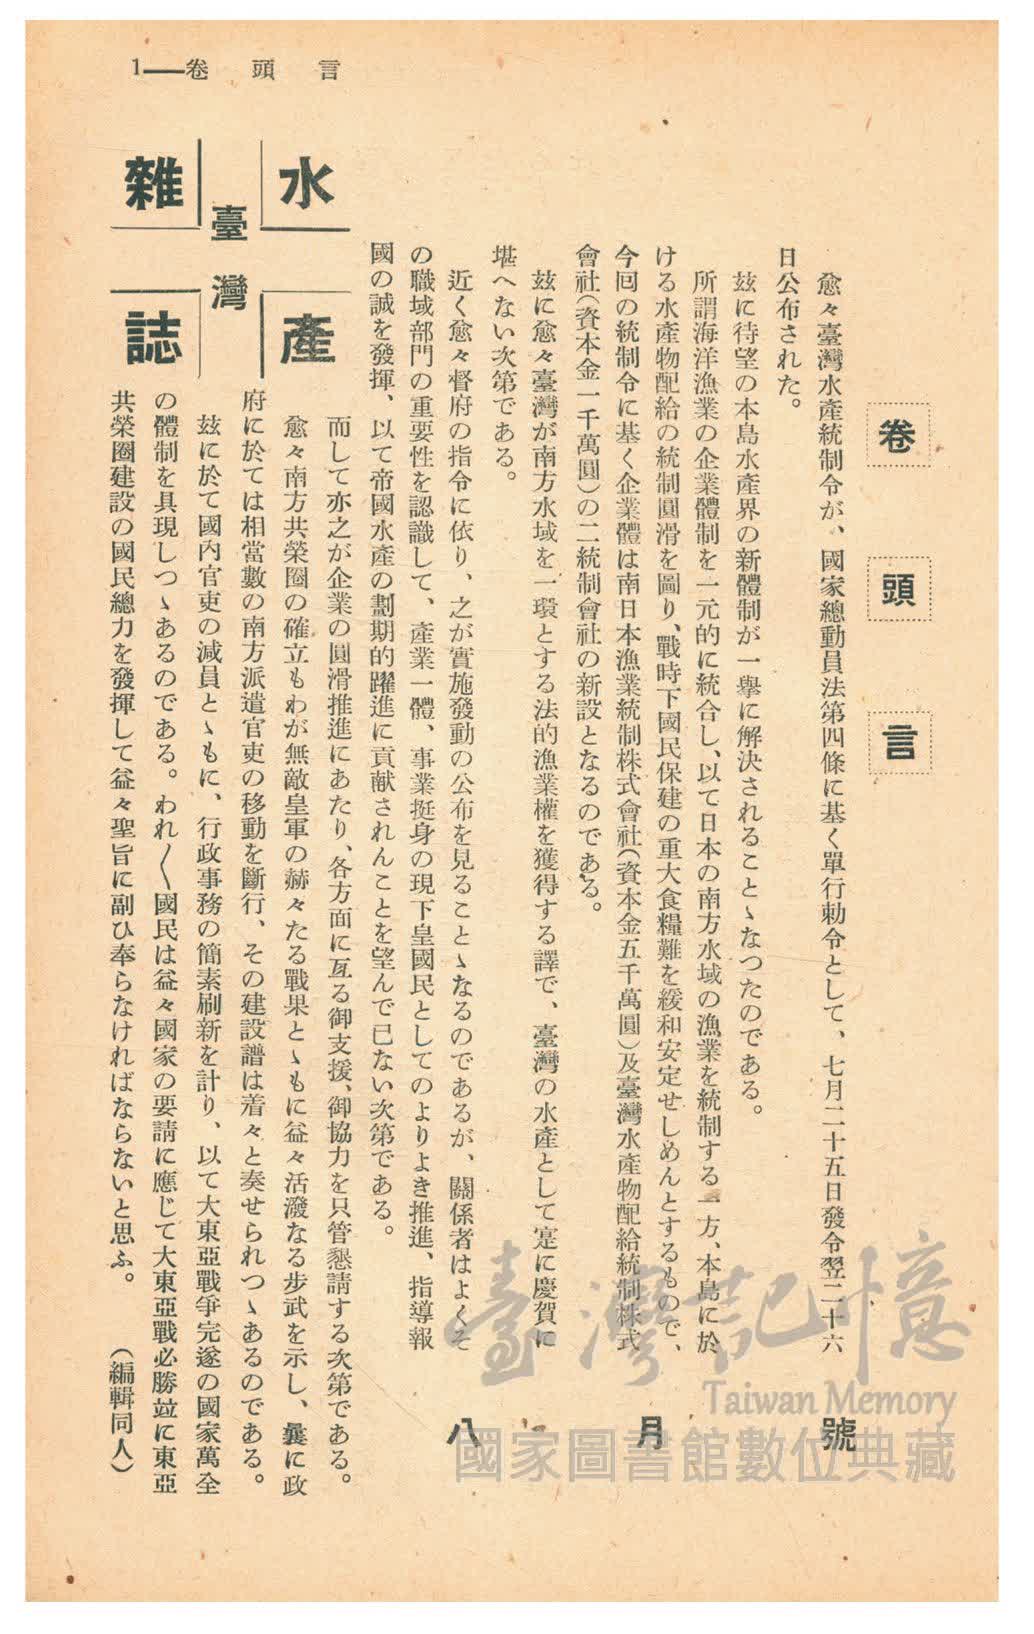 1—卷頭言
臺灣
水產
雜誌
卷頭言
愈々臺灣水產統制令が、國家總動員法第四條に基く單行勅令として、七月二十五日發令翌二十六
日公布された。
玆に待望の本島水產界の新體制が一擧に解決されることゝなつたのである。
所謂海洋漁業の企業體制を一元的に統合し、以て日本の南方水域の漁業を統制する一方、本島に於
ける水產物配給の統制圓滑を圖り、戰時下國民保建の重大食糧難を緩和安定せしめんとするもので、
今囘の統制令に基く企業體は南日本漁業統制株式會社(資本金五千萬圓)及臺灣水產物配給統制株式
會社(資本金一千萬圓)の二統制會社の新設となるのである。
玆に愈々臺灣が南方水域を一環とする法的漁業權を獲得する譯で、臺灣の水產として寔に慶賀に
堪へない次第である。
近く愈々督府の指令に依り、之が實施發動の公布を見ることゝなるのであるが、關係者はよくそ
の職域部門の重要性を認識して、產業一體、事業挺身の現下皇國民としてのよりよき推進、指導報
國の誠を發揮、以て帝國水產の劃期的躍進に貢献されんことを望んで已ない次第である。
而して亦之が企業の圓滑推進にあたり、各方面に亙る御支援、御協力を只管懇請する次第である。
愈々南方共榮圈の確立もわが無敵皇軍の赫々たる戰果とゝもに益々活潑なる步武を示し、曩に政
府に於ては相當數の南方派遣官吏の移動を斷行、その建設譜は着々と奏せられつゝあるのである。
玆に於て國內官吏の減員とゝもに、行政事務の簡素刷新を計り、以て大東亞戰爭完遂の國家萬全
の體制を具現しつゝあるのである。われ〱國民は益々國家の要請に應じて大東亞戰必勝竝に東亞
共榮圈建設の國民總力を發揮して益々聖旨に副ひ奉らなければならないと思ふ。　（編輯同人）
八月號
臺灣記憶
Taiwan Memory
國家圖書館數位典藏